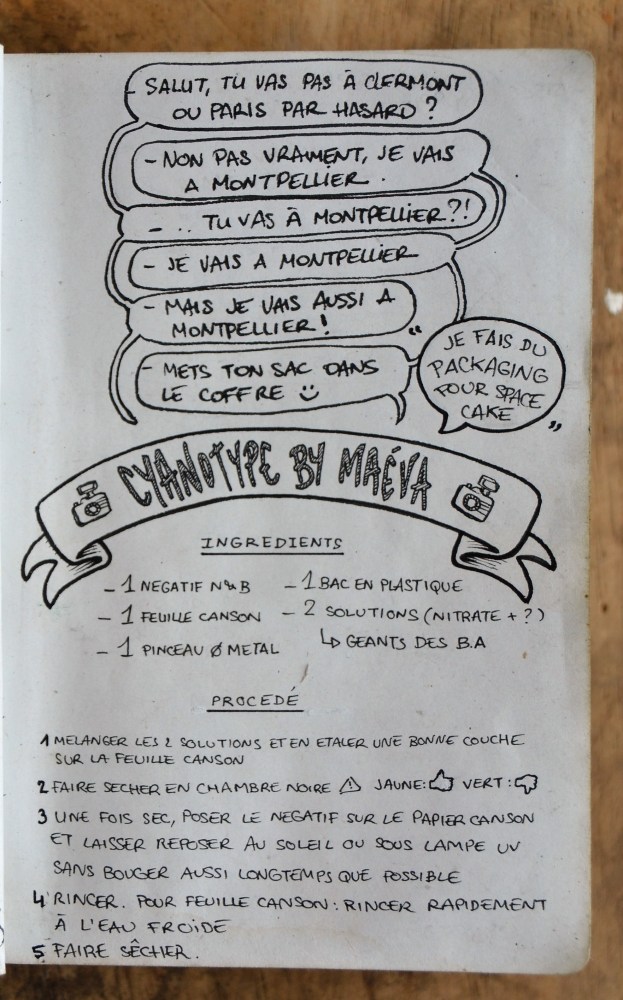 - SALUT, TU VAS PAS À CLERMONT
OU PARIS PAR HASARD ?
- NON PAS VRAIMENT, JE VAIS
A MONTPELLIER.
- .. TU VAS À MONTPELLIER ?!
- JE VAIS A MONTPELLIER
- MAIS JE VAIS AUSSI A
MONTPELLIER !
- METS TON SAC DANS
LE COFFRE
“ JE FAIS DU
PACKAGING
POUR SPACE
CAKE ”
CYANOTYPE BY MAÉVA
INGREDIENTS
- 1 NEGATIF N&B
- 1 FEUILLE CANSON
- 1 PINCEAU Ø METAL
- 1 BAC EN PLASTIQUE
- 2 SOLUTIONS (NITRATE + ?)
↳ GEANTS DES B.A
PROCEDÉ
1 MELANGER LES 2 SOLUTIONS ET EN ETALER UNE BONNE COUCHE
SUR LA FEUILLE CANSON
2 FAIRE SECHER EN CHAMBRE NOIRE ⚠ JAUNE: 👍 VERT: 👎
3 UNE FOIS SEC, POSER LE NEGATIF SUR LE PAPIER CANSON
ET LAISSER REPOSER AU SOLEIL OU SOUS LAMPE UV
SANS BOUGER AUSSI LONGTEMPS QUE POSSIBLE
4 RINCER. POUR FEUILLE CANSON: RINCER RAPIDEMENT
À L'EAU FROIDE
5 FAIRE SÊCHER.